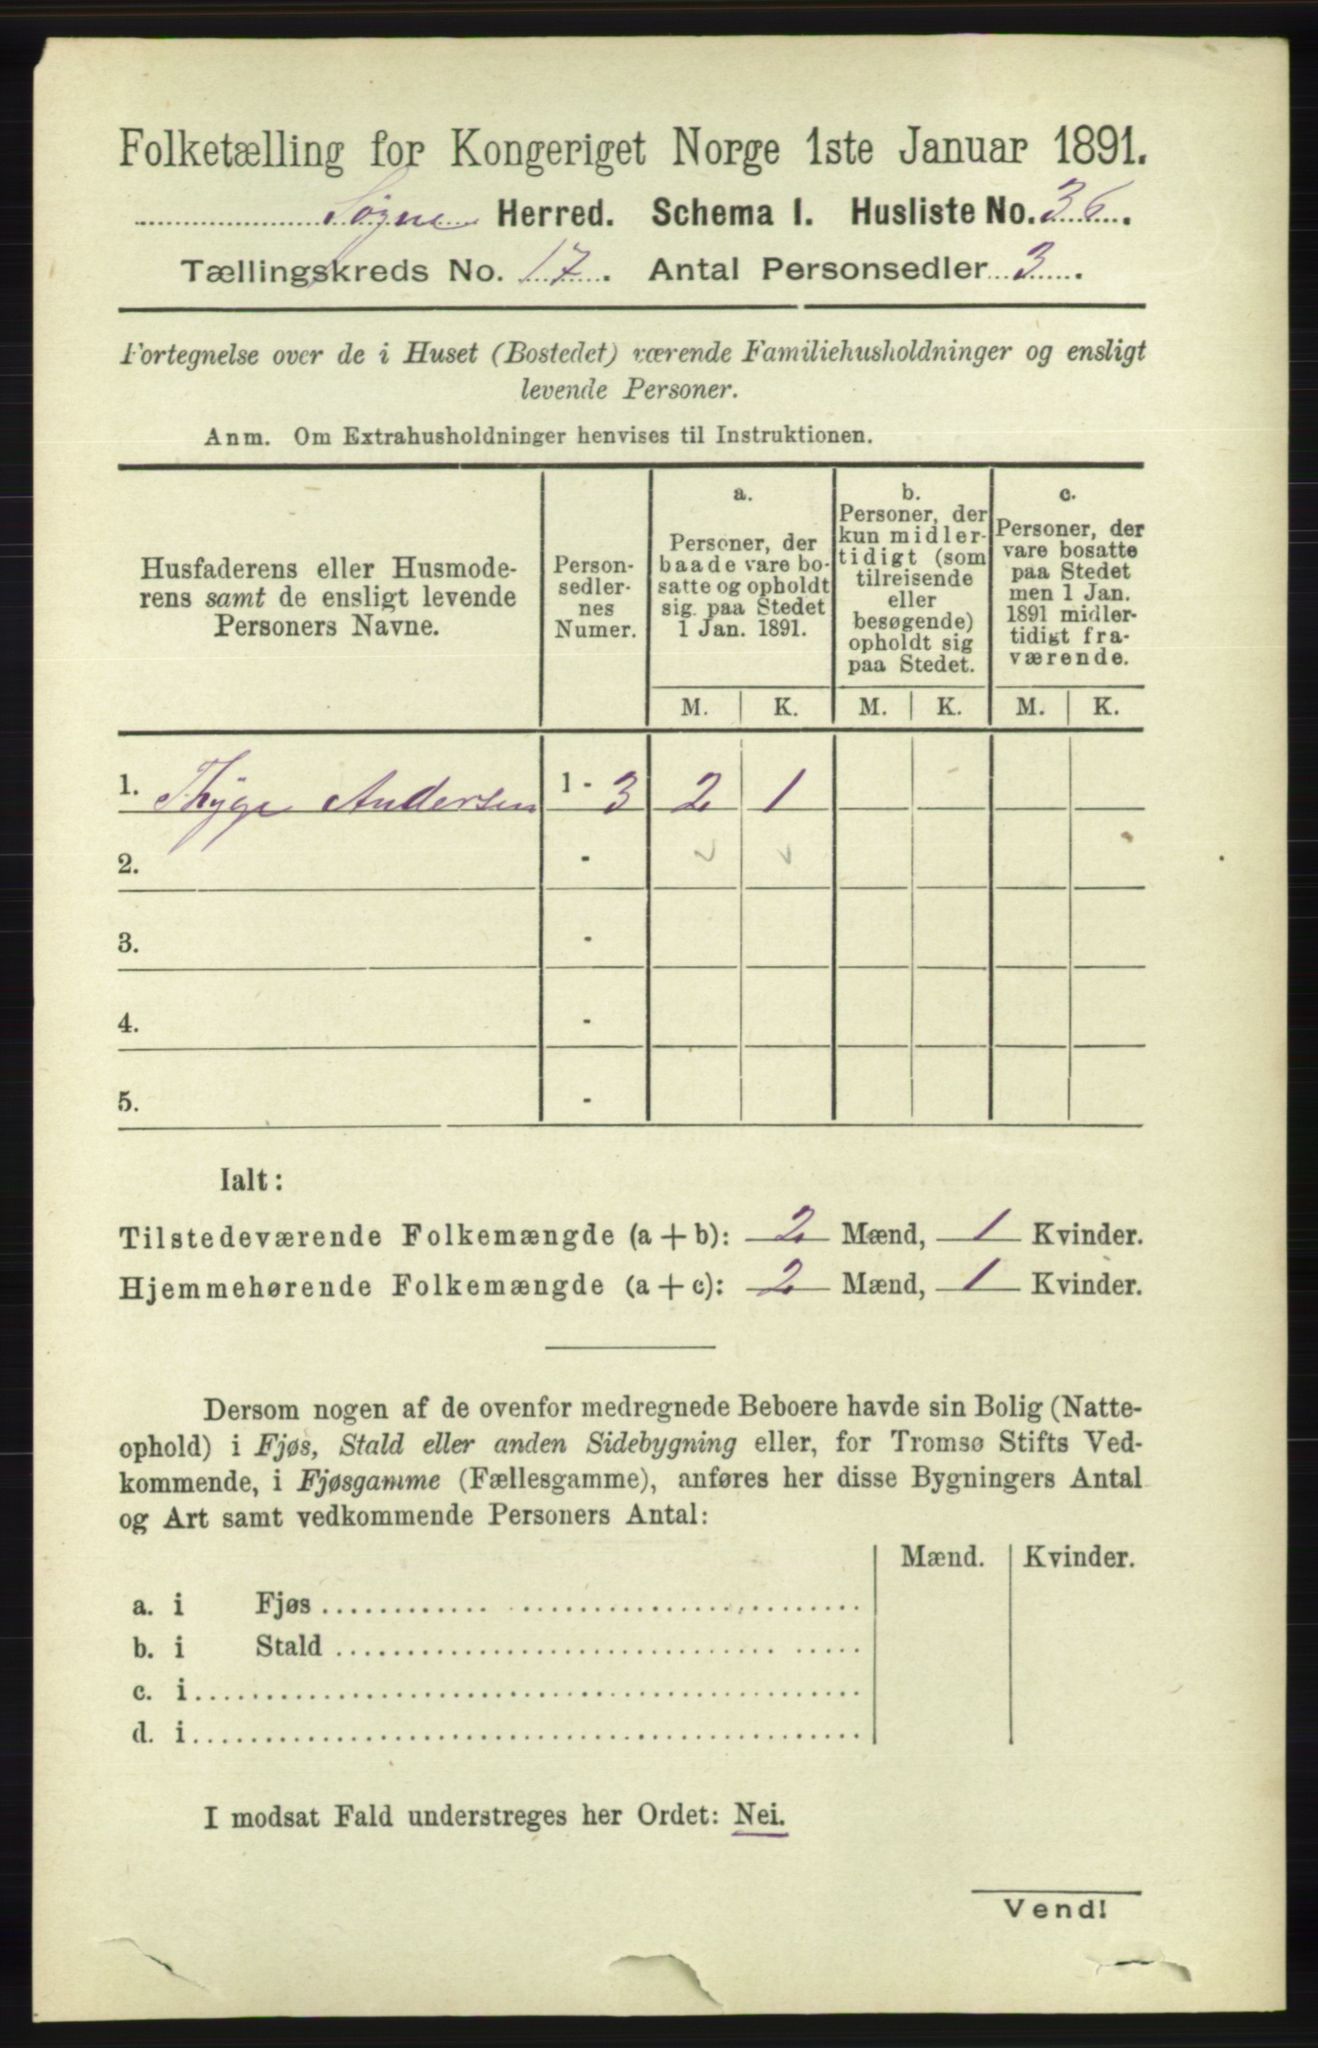 Folketælling for Kongeriget Norge 1ste Januar 1891.
Søgne Herred. Schema I. Husliste No. 36.
Tællingskreds No. 17. Antal Personsedler 3.
Fortegnelse over de i Huset (Bostedet) værende Familiehusholdninger og ensligt
levende Personer.
Anm. Om Extrahusholdninger henvises til Instruktionen.
Husfaderens eller Husmode-
rens samt de ensligt levende
Personers Navne.
Person-
sedler-
nes
Numer.
a.
Personer, der
baade vare bo-
satte og opholdt
sig paa Stedet
1 Jan. 1891.
b.
Personer, der
kun midler-
tidigt (som
tilreisende
eller
besøgende)
opholdt sig
paa Stedet.
c.
Personer, der
vare bosatte
paa Stedet
men 1 Jan.
1891 midler-
tidigt fra-
værende.
M. K. M. K. M. K.
1. Thÿge Andersen 1 - 3 2 1
2. -
3. -
4. -
5. -
Ialt:
Tilstedeværende Folkemængde (a + b): 2 Mænd, 1 Kvinder.
Hjemmehørende Folkemængde (a + c): 2 Mænd, 1 Kvinder.
Dersom nogen af de ovenfor medregnede Beboere havde sin Bolig (Natte-
ophold) i Fjøs, Stald eller anden Sidebygning eller, for Tromsø Stifts Ved-
kommende, i Fjøsgamme (Fællesgamme), anføres her disse Bygningers Antal
og Art samt vedkommende Personers Antal:
Mænd. Kvinder.
a. i Fjøs
b. i Stald
c. i
d. i
I modsat Fald understreges her Ordet: Nei.
Vend!